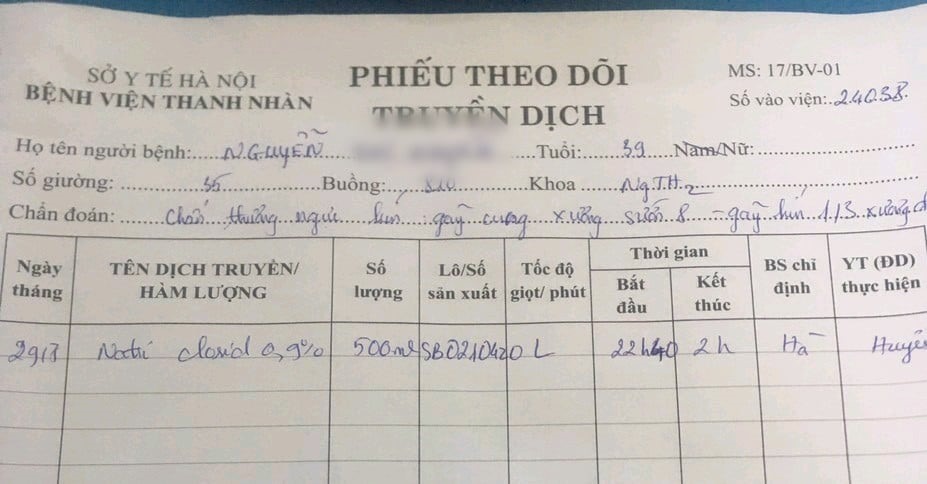 SỞ Y TẾ HÀ NỘI
BỆNH VIỆN THANH NHÀN
PHIẾU THEO DÕI
TRUYỀN DỊCH
MS: 17/BV-01
Số vào viện: 24038
Họ tên người bệnh: NGUYỄN Tuổi: 39 Nam/Nữ:
Số giường: 35 Buồng: Khoa Ng.T.H2
Chẩn đoán: thương ngực kín: gãy cung xương sườn 8 - gãy kín 1/3 xương đ
Ngày tháng TÊN DỊCH TRUYỀN/ HÀM LƯỢNG Số lượng Lô/Số sản xuất Tốc độ giọt/ phút Thời gian Bắt đầu Kết thúc BS chỉ định YT (ĐD) thực hiện
29/3 Natri clorid 0,9% 500ml SB0210420 L 22h40 2h Hà Huyề